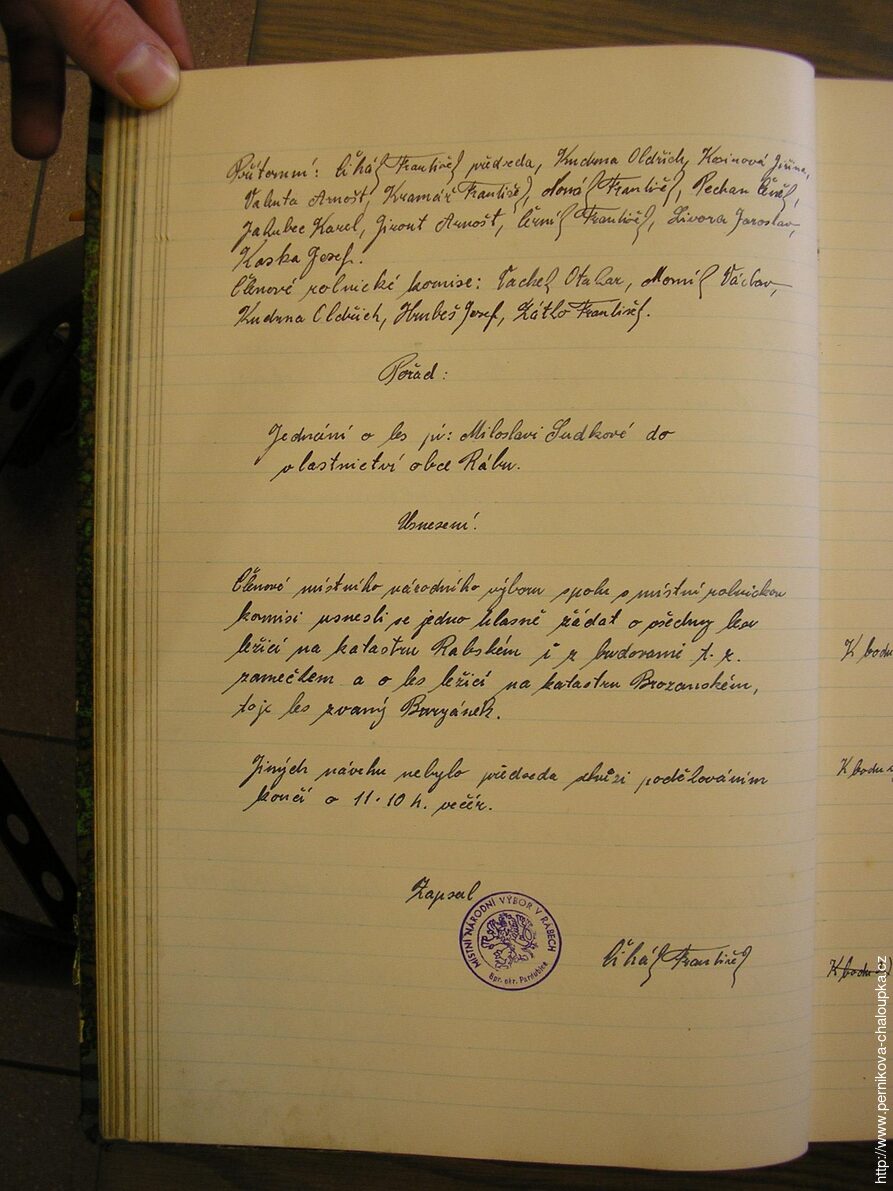 Přítomní: Čihák František předseda, Kudrna Oldřich, Kosinová Jiřina,
Valenta Arnošt, Kramář František, Novák František, Pechan Čeněk,
Jakubec Karel, Jirout Arnošt, Černík František, Sivora Jaroslav,
Kaska Josef.
Členové rolnické komise: Vacek Otakar, Václav,
Kudrna Oldřich, Hrubeš Josef, Zátko František.
Pořad:
Jednání o les pí: Miloslavi Sudkové do
vlastnictví obce Rábu.
Usnesení.
Členové místního národního výboru spolu s místní rolnickou
komisi usnesli se jedno hlasně žádat o všechny lesy
ležící na katastru Rabském i z budovami t. z.
zamečkem a o les ležící na katastru Brozanském,
toje les zvaný Barzánek.
Jiných návrhu nebylo předseda schůzi poděkováním
končí o 11.10 h. večír.
Zapsal
MÍSTNÍ NÁRODNÍ VÝBOR V RÁBECH
Spr. okr. Pardubice
Čihák František
K bodu
K bodu
K bodu
http://www.pernikova-chaloupka.cz